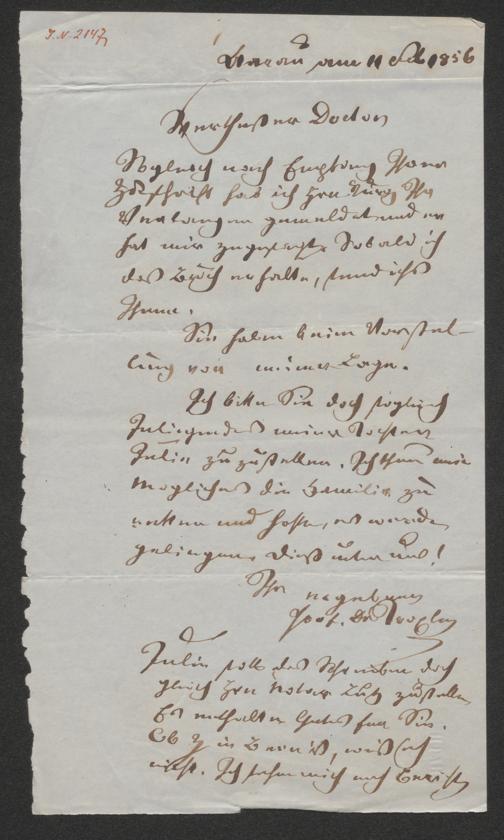 J.N. 2147,
Aarau am 11 Feb 1856
Werthester Doctor
Sogleich nach Empfang Ihrer
Zuschrift hab ich Hrn Ihr
Verlangen gemeldet und er
hat mir zugesagt. Sobald ich
das Buch erhalte, send ichs
Ihnen.
Sie haben keine Vorstel-
lung von meiner Lage.
Ich bitte Sie doch sogleich
Inliegendes meiner Tochter
Julie zuzustellen. Ich thue mein
Mögliches die Familie zu
retten und hoffe, es werde
gelingen. Dieß unter uns!
Ihr ergebener
Prof. Dr Troxler
Julie soll das Schreiben doch
gleich Hrn Notar zustellen
Es enthaltet Gutes für Sie.
Ob in Bern ist, weiß ich
nicht. Ich sehne mich nach